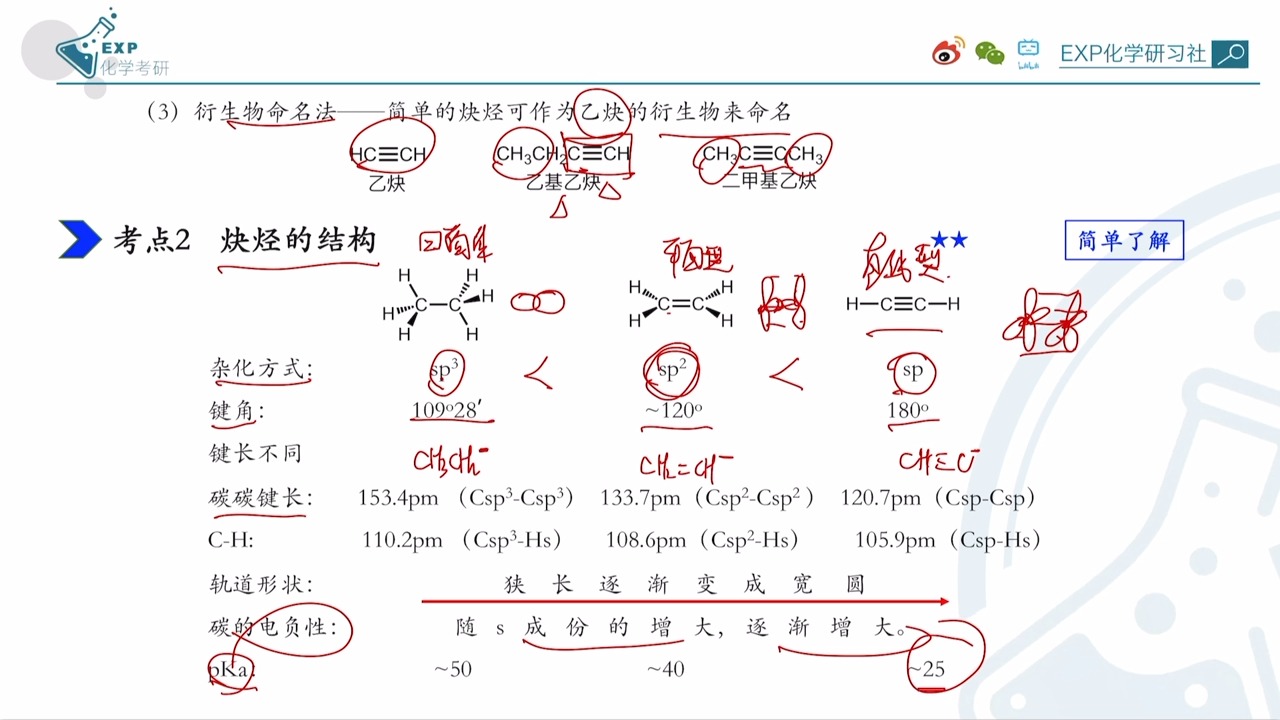 EXP
化学考研
EXP化学研习社
（3）衍生物命名法——简单的炔烃可作为乙炔的衍生物来命名
HC≡CH CH₃CH₂C≡CH CH₃C≡CCH₃
乙炔 乙基乙炔 二甲基乙炔
考点2 炔烃的结构 ★★ 简单了解
平面型 直线型
H H H C C H H H
H H C=C H H
H—C≡C—H
杂化方式: sp³ < sp² < sp
键角: 109°28′ ~120° 180°
键长不同
CH₃CH₂⁻ CH₂=CH⁻ CH≡C⁻
碳碳键长: 153.4pm （Csp³-Csp³） 133.7pm（Csp²-Csp²） 120.7pm（Csp-Csp）
C-H: 110.2pm （Csp³-Hs） 108.6pm（Csp²-Hs） 105.9pm（Csp-Hs）
轨道形状: 狭长逐渐变成宽圆
碳的电负性: 随s成份的增大，逐渐增大。
pKa: ~50 ~40 ~25